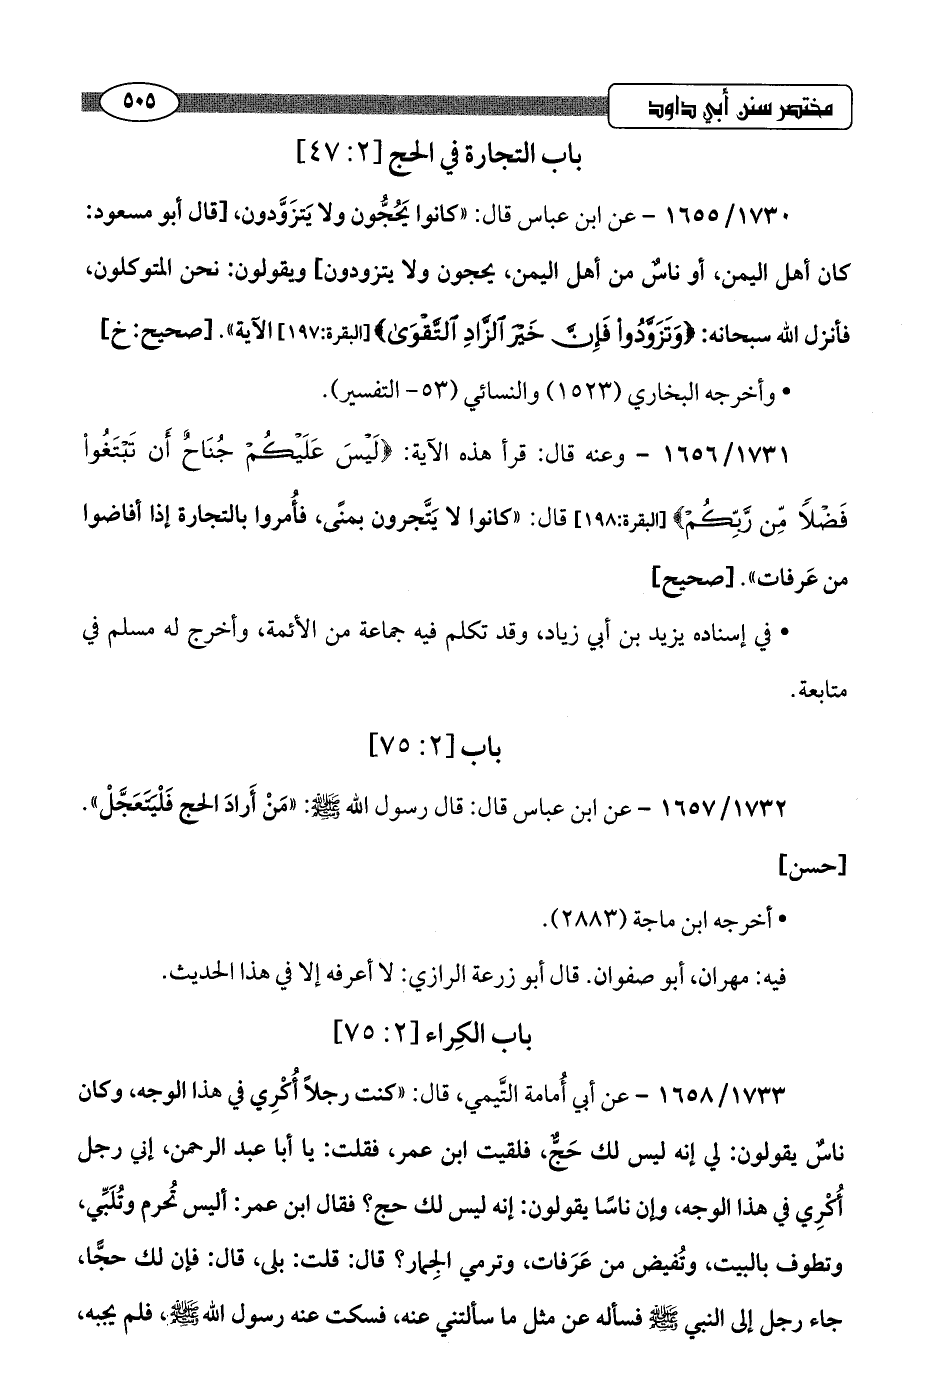 مختصر سنن أبي داود ٥٠٥
باب التجارة في الحج [٢: ٤٧]
١٦٥٥/١٧٣٠ - عن ابن عباس قال: «كانوا يَحُجُّون ولا يَتزوَّدون، [قال أبو مسعود:
كان أهل اليمن، أو ناسٌ من أهل اليمن، يحجون ولا يتزودون] ويقولون: نحن المتوكلون،
فأنزل الله سبحانه: ﴿وَتَزَوَّدُواْ فَإِنَّ خَيْرَ ٱلزَّادِ ٱلتَّقْوَىٰ﴾[البقرة:١٩٧] الآية». [صحيح: خ]
• وأخرجه البخاري (١٥٢٣) والنسائي (٥٣- التفسير).
١٦٥٦/١٧٣١ - وعنه قال: قرأ هذه الآية: ﴿لَيْسَ عَلَيْكُمْ جُنَاحٌ أَن تَبْتَغُواْ
فَضْلًا مِّن رَّبِّكُمْ﴾ [البقرة:١٩٨] قال: «كانوا لا يَتَّجرون بمنًى، فأُمروا بالتجارة إذا أفاضوا
من عَرفات». [صحيح]
• في إسناده يزيد بن أبي زياد، وقد تكلم فيه جماعة من الأئمة، وأخرج له مسلم في
متابعة.
باب [٢: ٧٥]
١٦٥٧/١٧٣٢ - عن ابن عباس قال: قال رسول الله ﷺ: «مَنْ أَرادَ الحج فَلْيَتَعَجَّلْ».
[حسن]
• أخرجه ابن ماجة (٢٨٨٣).
فيه: مهران، أبو صفوان. قال أبو زرعة الرازي: لا أعرفه إلا في هذا الحديث.
باب الكِراء [٢: ٧٥]
١٦٥٨/١٧٣٣ - عن أبي أُمامة التَّيمي، قال: «كنت رجلاً أُكْرِي في هذا الوجه، وكان
ناسٌ يقولون: لي إنه ليس لك حَجٌّ، فلقيت ابن عمر، فقلت: يا أبا عبد الرحمن، إني رجل
أُكْرِي في هذا الوجه، وإن ناسًا يقولون: إنه ليس لك حج؟ فقال ابن عمر: أليس تُحرم وتُلَبِّي،
وتطوف بالبيت، وتُفيض من عَرَفات، وترمي الجِمار؟ قال: قلت: بلى، قال: فإن لك حجًّا،
جاء رجل إلى النبي ﷺ فسأله عن مثل ما سألتني عنه، فسكت عنه رسول الله ﷺ، فلم يجبه،